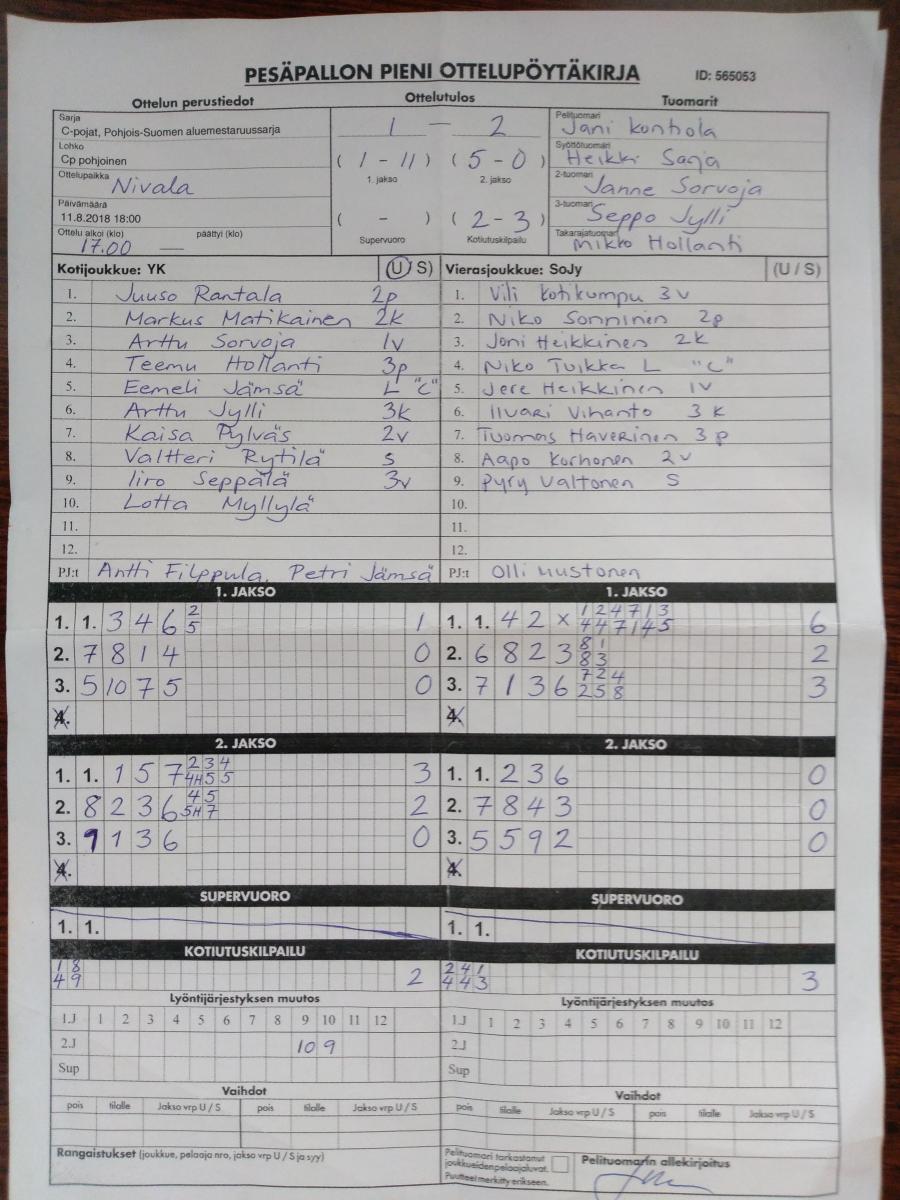 PESÄPALLON PIENI OTTELUPÖYTÄKIRJA ID: 565053
Ottelun perustiedot Ottelutulos Tuomarit
Sarja
C-pojat, Pohjois-Suomen aluemestaruussarja
Lohko
Cp pohjoinen
Ottelupaikka
Nivala
Päivämäärä
11.8.2018 18:00
Ottelu alkoi (klo) päättyi (klo)
17.00 —
1 — 2
(1 - 11) (5 - 0)
1. jakso 2. jakso
( - ) (2 - 3)
Supervuoro Kotiutuskilpailu
Pelituomari
Jani Konhola
Syöttötuomari
Heikki Sarja
2-tuomari
Janne Sorvoja
3-tuomari
Seppo Jylli
Takarajatuomari
Mikko Hollanti
Kotijoukkue: YK (U / S)
1. Juuso Rantala 2p
2. Markus Matikainen 2k
3. Arttu Sorvoja 1v
4. Teemu Hollanti 3p
5. Eemeli Jämsä L "C"
6. Arttu Jylli 3k
7. Kaisa Pylväs 2v
8. Valtteri Rytilä S
9. Iiro Seppälä 3v
10. Lotta Myllylä
11.
12.
PJ:t Antti Filppula, Petri Jämsä
Vierasjoukkue: SoJy (U / S)
1. Vili Kotikumpu 3v
2. Niko Sonninen 2p
3. Joni Heikkinen 2k
4. Niko Tuikka L "C"
5. Jere Heikkinen 1v
6. Iivari Vihanto 3k
7. Tuomas Haverinen 3p
8. Aapo Korhonen 2v
9. Pyry Valtonen S
10.
11.
12.
PJ:t Olli Mustonen
1. JAKSO
1. 1. 3 4 6 2 5 1
2. 7 8 1 4 0
3. 5 10 7 5 0
4.
1. JAKSO
1. 1. 4 2 x 1 2 4 7 1 3 6
4 4 7 1 4 5
2. 6 8 2 3 8 1 2
8 3
3. 7 1 3 6 7 2 4 3
2 5 8
4.
2. JAKSO
1. 1. 1 5 7 2 3 4 3
4H 5 5
2. 8 2 3 6 4 5 2
5H 7
3. 9 1 3 6 0
4.
2. JAKSO
1. 1. 2 3 6 0
2. 7 8 4 3 0
3. 5 5 9 2 0
4.
SUPERVUORO
1. 1.
SUPERVUORO
1. 1.
KOTIUTUSKILPAILU
1 8
4 9 2
KOTIUTUSKILPAILU
2 4 1
4 4 3 3
Lyöntijärjestyksen muutos
1.J 1 2 3 4 5 6 7 8 9 10 11 12
2.J 10 9
Sup
Lyöntijärjestyksen muutos
1.J 1 2 3 4 5 6 7 8 9 10 11 12
2.J
Sup
Vaihdot
pois tilalle Jakso vrp U / S pois tilalle Jakso vrp U / S
Vaihdot
pois tilalle Jakso vrp U / S pois tilalle Jakso vrp U / S
Rangaistukset (joukkue, pelaaja nro, jakso vrp U / S ja syy)
Pelituomari tarkastanut
joukkueiden pelaajaluvat.
Puutteet merkitty erikseen.
Pelituomarin allekirjoitus